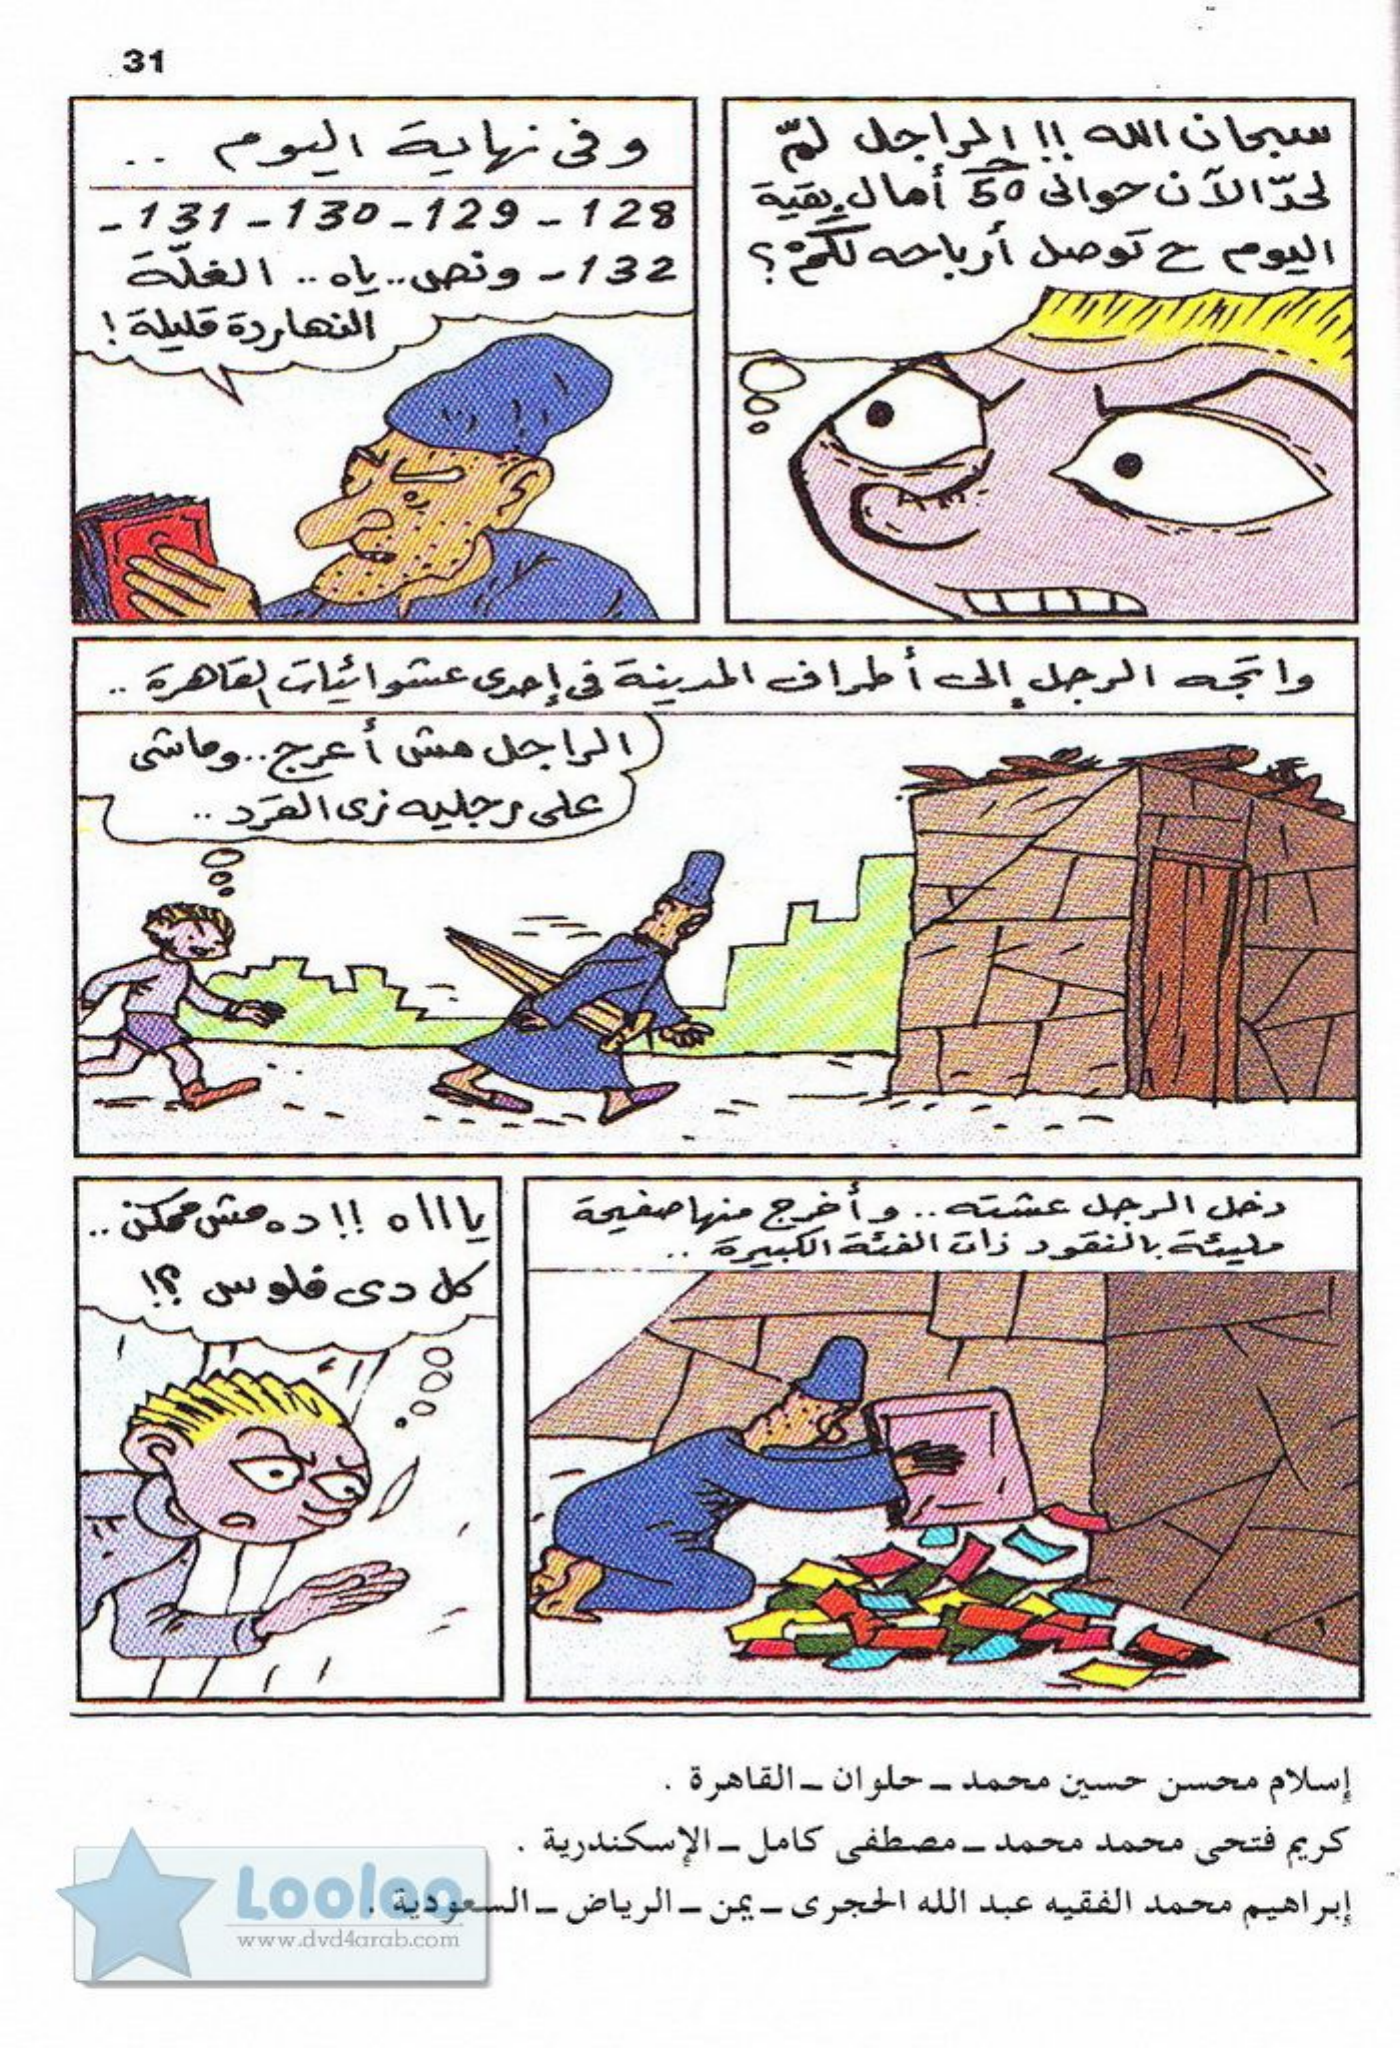 31
سبحان الله !! الراجل لمّ
لحدّ الآن حوالى 50 جـ أمال بقية
اليوم ح توصل أرباحه لكمْ ؟
وفى نهاية اليوم ..
128 - 129 - 130 - 131 -
132 - ونص .. ياه .. الغلّة
النهاردة قليلة !
واتجه الرجل إلى أطراف المدينة فى إحدى عشوائيات القاهرة ..
الراجل مش أعرج .. وماشى
على رجليه زى القرد ..
دخل الرجل عشته .. وأخرج منها صفيحة
مليئة بالنقود ذات الفئة الكبيرة ..
ياااه !! ده مش ممكن ..
كل دى فلوس ؟!
إسلام محسن حسين محمد ــ حلوان ــ القاهرة .
كريم فتحى محمد محمد ــ مصطفى كامل ــ الإسكندرية .
إبراهيم محمد الفقيه عبد الله الحجرى ــ يمن ــ الرياض ــ السعودية .
Looloo
www.dvd4arab.com